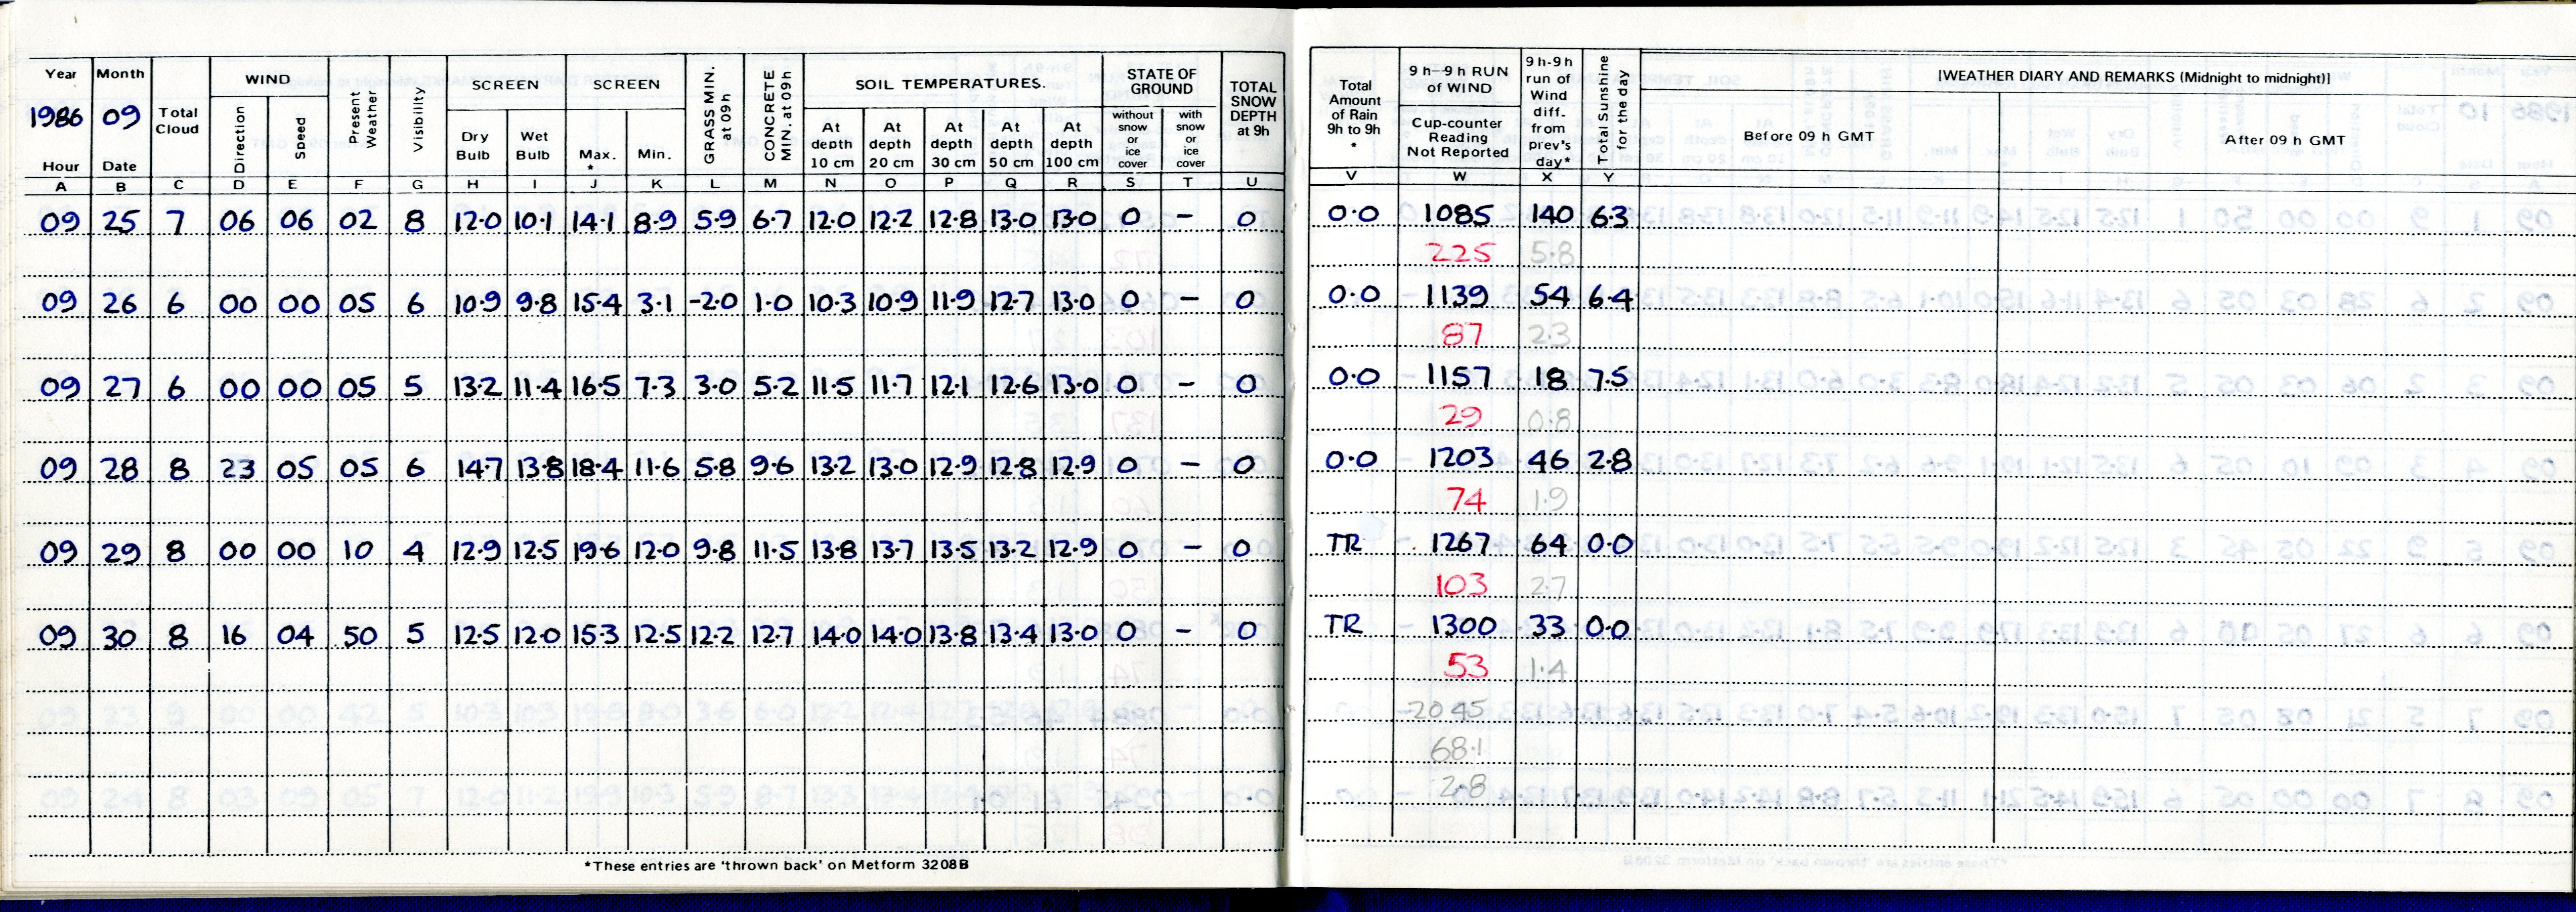 Year Month
1986 09
Hour Date
Total Cloud
WIND
Direction Speed
Present Weather
Visibility
SCREEN
Dry Bulb Wet Bulb
SCREEN
Max. * Min.
GRASS MIN. at 09h
CONCRETE MIN. at 09h
SOIL TEMPERATURES.
At depth 10 cm At depth 20 cm At depth 30 cm At depth 50 cm At depth 100 cm
STATE OF GROUND
without snow or ice cover with snow or ice cover
TOTAL SNOW DEPTH at 9h
Total Amount of Rain 9h to 9h *
9 h–9 h RUN of WIND
Cup-counter Reading Not Reported
9 h-9h run of Wind diff. from prev's day*
Total Sunshine for the day
[WEATHER DIARY AND REMARKS (Midnight to midnight)]
Before 09 h GMT After 09 h GMT
A B C D E F G H I J K L M N O P Q R S T U V W X Y
09 25 7 06 06 02 8 12.0 10.1 14.1 8.9 5.9 6.7 12.0 12.2 12.8 13.0 13.0 0 – 0 0.0 1085 140 6.3
225 5.8
09 26 6 00 00 05 6 10.9 9.8 15.4 3.1 -2.0 1.0 10.3 10.9 11.9 12.7 13.0 0 – 0 0.0 1139 54 6.4
87 2.3
09 27 6 00 00 05 5 13.2 11.4 16.5 7.3 3.0 5.2 11.5 11.7 12.1 12.6 13.0 0 – 0 0.0 1157 18 7.5
29 0.8
09 28 8 23 05 05 6 14.7 13.8 18.4 11.6 5.8 9.6 13.2 13.0 12.9 12.8 12.9 0 – 0 0.0 1203 46 2.8
74 1.9
09 29 8 00 00 10 4 12.9 12.5 19.6 12.0 9.8 11.5 13.8 13.7 13.5 13.2 12.9 0 – 0 TR 1267 64 0.0
103 2.7
09 30 8 16 04 50 5 12.5 12.0 15.3 12.5 12.2 12.7 14.0 14.0 13.8 13.4 13.0 0 – 0 TR 1300 33 0.0
53 1.4
2045
68.1
2.8
*These entries are 'thrown back' on Metform 3208B